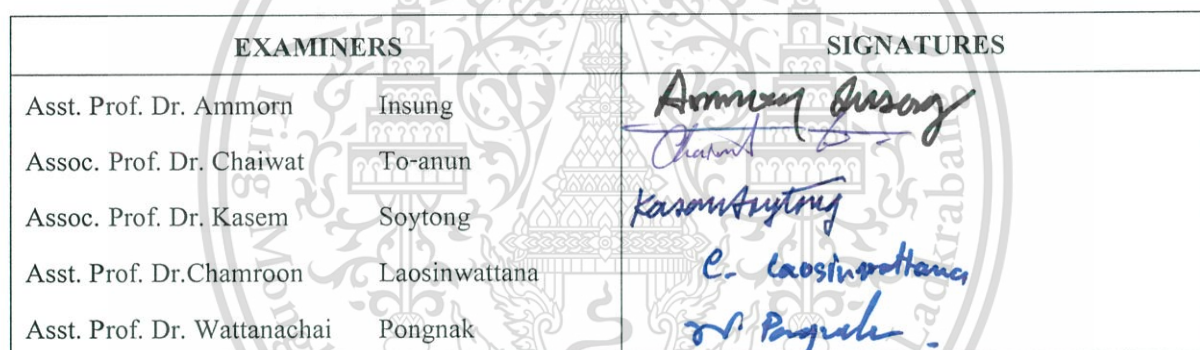 EXAMINERS SIGNATURES
Asst. Prof. Dr. Ammorn Insung Ammorn Insung
Assoc. Prof. Dr. Chaiwat To-anun Chaiwat
Assoc. Prof. Dr. Kasem Soytong Kasem Soytong
Asst. Prof. Dr.Chamroon Laosinwattana C. Laosinwattana
Asst. Prof. Dr. Wattanachai Pongnak W. Pongnak
King Mong
adkrabang